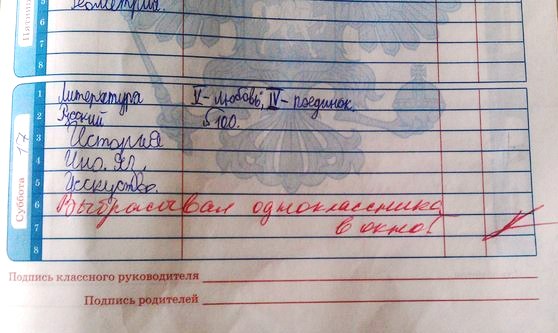 Геометрия
6
7
8
Суббота 17
1 Литература V - любовь; IV - поединок.
2 Русский §100.
3 История
4 Ино. яз.
5 Исскуство.
6 Выбрасывал одноклассника
7 в окно!
8
Подпись классного руководителя
Подпись родителей